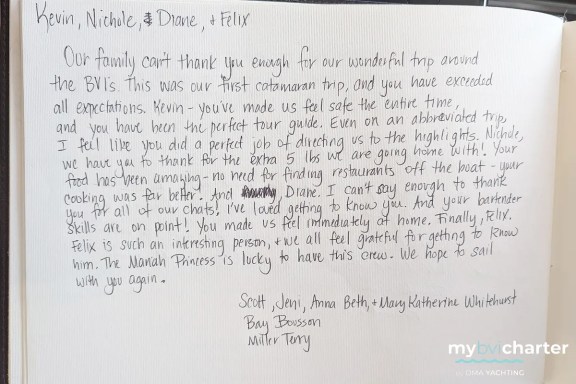 Kevin, Nichole, & Diane, + Felix
Our family can't thank you enough for our wonderful trip around
the BVI's. This was our first catamaran trip, and you have exceeded
all expectations. Kevin - you've made us feel safe the entire time,
and you have been the perfect tour guide. Even on an abbreviated trip,
I feel like you did a perfect job of directing us to the highlights. Nichole,
we have you to thank for the extra 5 lbs we are going home with! Your
food has been amazing - no need for finding restaurants off the boat - your
cooking was far better. And Diane. I can't say enough to thank
you for all of our chats! I've loved getting to know you. And your bartender
skills are on point! You made us feel immediately at home. Finally, Felix.
Felix is such an interesting person, + we all feel grateful for getting to know
him. The Manah Princess is lucky to have this crew. We hope to sail
with you again.
Scott, Jeni, Anna Beth, + Mary Katherine Whitehurst
Bay Bousson
Miller Terry
mybvicharter
by DMA YACHTING